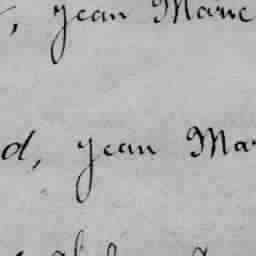 , Jean Marie
d, Jean Mar